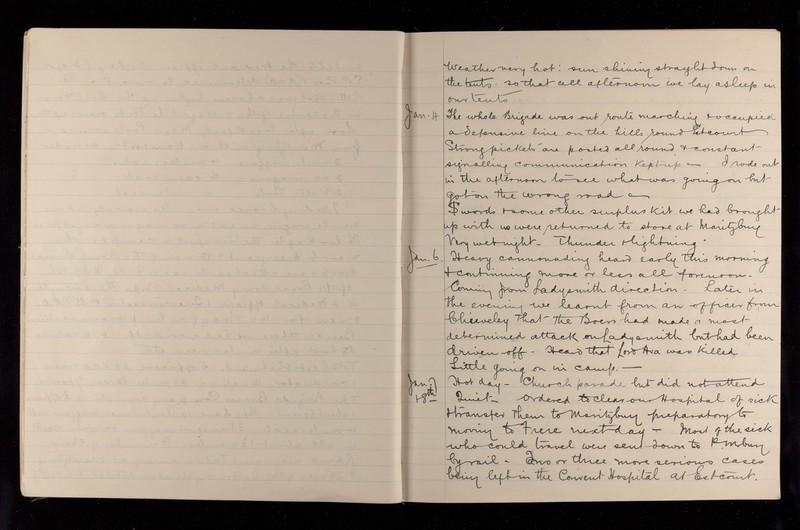 Weather very hot: sun shining straight down on
the tents. so that all afternoon we lay asleep in
our tents
Jan. 4 The whole Brigade was out route marching & occupied
a defensive line on the hills round Estcourt
Strong pickets are posted all round, & constant
signalling communication kept up — I rode out
in the afternoon to see what was going on but
got on the wrong road
Swords & some other surplus kit we had brought
up with us were returned to store at Maritzburg
Very wet night - Thunder & lightning.
Jan. 6 Heavy cannonading heard early this morning
& continuing more or less all forenoon -
Coming from Ladysmith direction. Later in
the evening we learnt from an officer from
Chieveley that the Boers had made a most
determined attack on Ladysmith but had been
driven off - Heard that Lord Ava was killed
Little going on in camp. —
Jan. 7 Hot day - Church parade but did not attend
& 8th Quiet - Ordered to clear our Hospital of sick
& transfer them to Maritzburg preparatory to
moving to Frere next day — Most of the sick
who could travel were sent down to P.mburg
by rail - Two or three more serious cases
being left in the Convent Hospital at Estcourt.